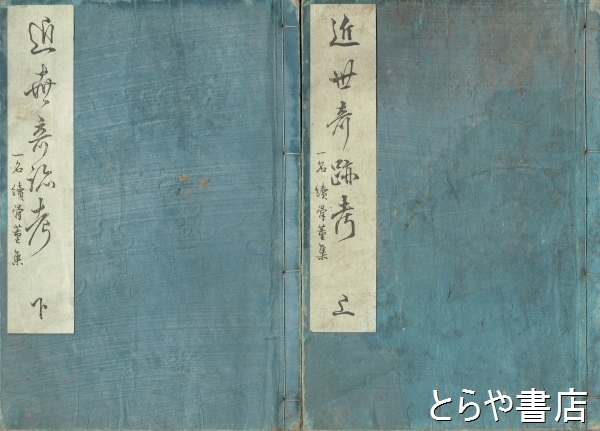 近世奇跡考
一名續骨董集
上
近世奇跡考
一名續骨董集
下
とらや書店